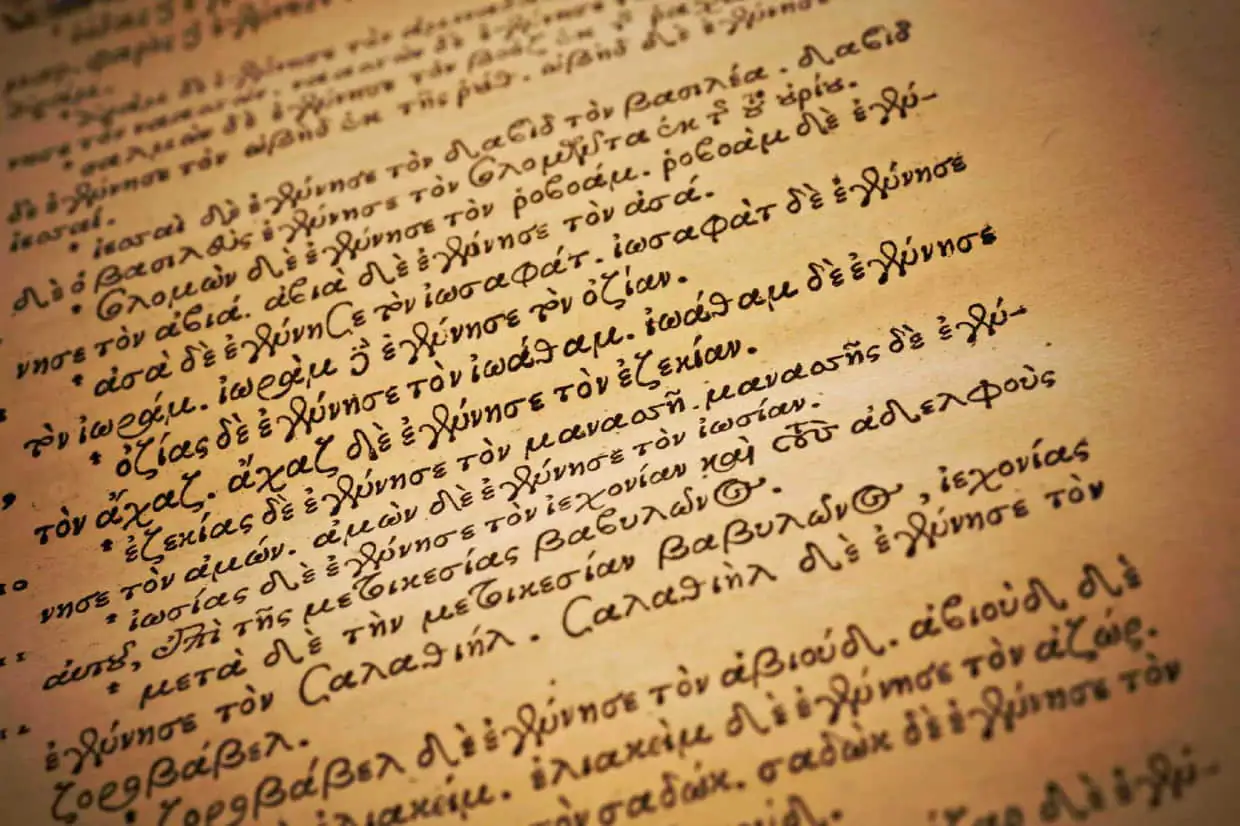 * σαλμὼν δὲ ἐγέννησε τὸν βοὸζ ἐκ τῆς
δὲ ἐγέννησε τὸν ὠβὴδ ἐκ τῆς ῥούθ. ὠβὴδ δὲ ἐγέννησε
ἰεσσαί.
* ἰεσσαὶ δὲ ἐγέννησε τὸν δαβὶδ τὸν βασιλέα. δαβὶδ
δὲ ὁ βασιλεὺς ἐγέννησε τὸν σολομῶντα ἐκ τῆς τοῦ οὐρίου.
* σολομὼν δὲ ἐγέννησε τὸν ῥοβοάμ. ῥοβοὰμ δὲ ἐγέν-
νησε τὸν ἀβιά. ἀβιὰ δὲ ἐγέννησε τὸν ἀσά.
* ἀσὰ δὲ ἐγέννησε τὸν ἰωσαφάτ. ἰωσαφὰτ δὲ ἐγέννησε
τὸν ἰωράμ. ἰωρὰμ δὲ ἐγέννησε τὸν ὀζίαν.
* ὀζίας δὲ ἐγέννησε τὸν ἰωάθαμ. ἰωάθαμ δὲ ἐγέννησε
τὸν ἄχαζ. ἄχαζ δὲ ἐγέννησε τὸν ἐζεκίαν.
* ἐζεκίας δὲ ἐγέννησε τὸν μανασσῆ. μανασσῆς δὲ ἐγέν-
10 νησε τὸν ἀμών. ἀμὼν δὲ ἐγέννησε τὸν ἰωσίαν.
* ἰωσίας δὲ ἐγέννησε τὸν ἰεχονίαν καὶ τοὺς ἀδελφοὺς
11 αὐτοῦ, ἐπὶ τῆς μετοικεσίας βαβυλῶνος.
* μετὰ δὲ τὴν μετοικεσίαν βαβυλῶνος, ἰεχονίας
12 ἐγέννησε τὸν Σαλαθιήλ. Σαλαθιὴλ δὲ ἐγέννησε τὸν
ζοροβάβελ.
* ζοροβάβελ δὲ ἐγέννησε τὸν ἀβιούδ. ἀβιοὺδ δὲ
ἐλιακείμ. ἐλιακεὶμ δὲ ἐγέννησε τὸν ἀζώρ.
τὸν σαδώκ. σαδὼκ δὲ ἐγέννησε τὸν
δὲ ἐγέν-